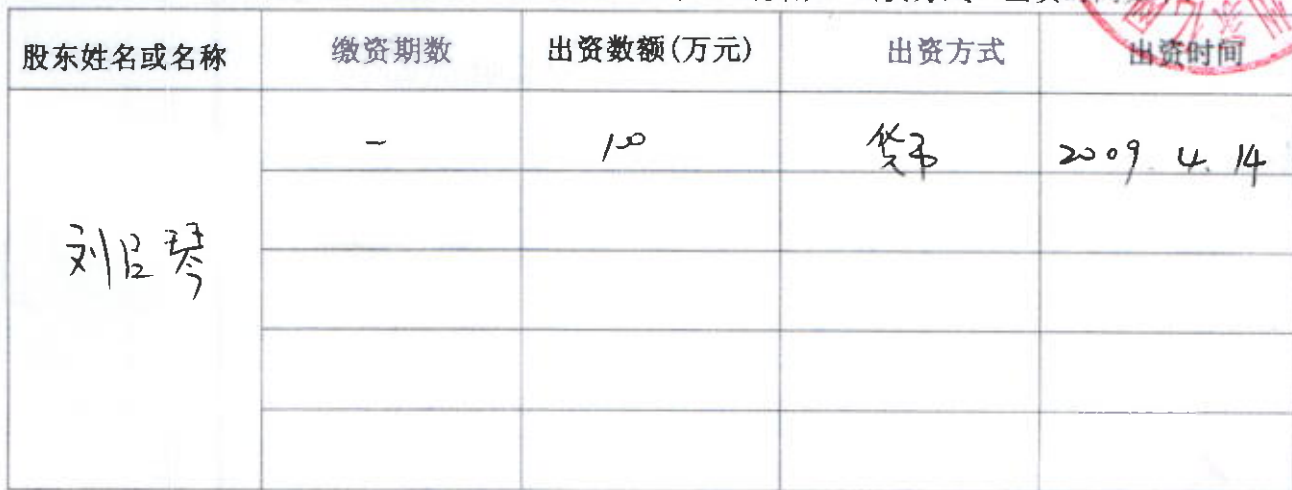 股东姓名或名称 缴资期数 出资数额(万元) 出资方式 出资时间
一 100 货币 2009.4.14
刘 琴